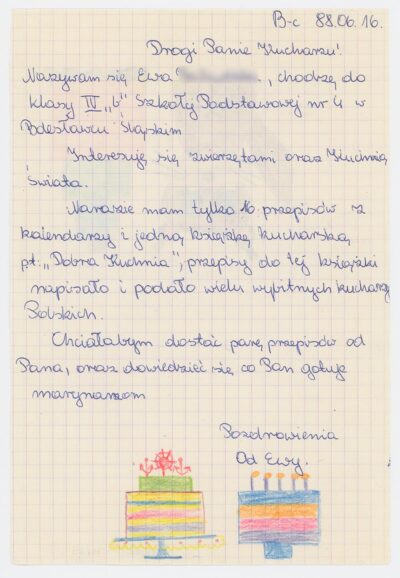 B-c 88.06.16.
Drogi Panie Kucharzu!
Nazywam się Ewa ., chodzę do
klasy IV „b" Szkoły Podstawowej nr 4 w
Bolesławcu Śląskim
Interesuję się zwierzętami oraz Kuchnią
Świata.
Narazie mam tylko 16 przepisów z
kalendarzy i jedną książkę kucharską
pt. „Dobra Kuchnia", przepisy do tej książki
napisało i podało wielu wybitnych kucharzy
Polskich.
Chciałabym dostać parę przepisów od
Pana, oraz dowiedzieć się co Pan gotuje
marynarzom
Pozdrowienia
Od Ewy.